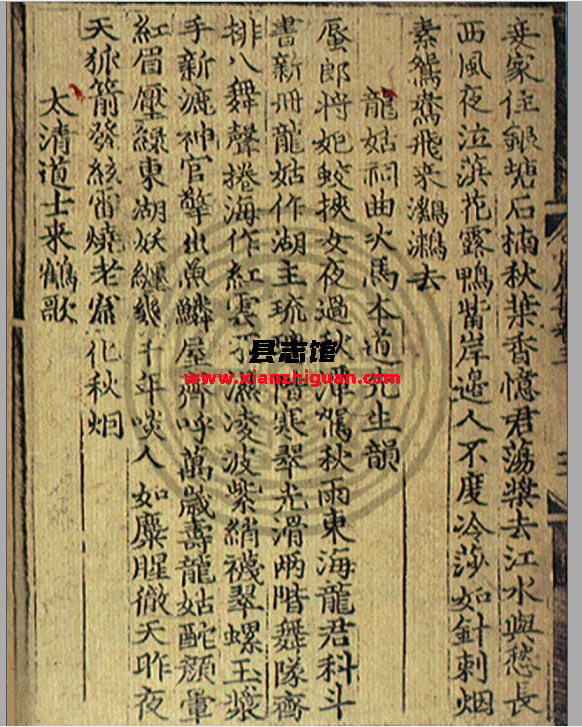 妾家住銀塘石楠秋葉香憶君蕩槳去江水與愁長
西風夜泣蓱花露鴨觜岸邊人不度冷莎如針刺烟
素鴛鴦飛来鸂鶒去
龍姑祠曲次馬本道先生韻
蜃郎將妑鮫挾女夜過秋潭駕秋雨東海龍君科斗
書新冊龍姑作湖主琉璃階寒翠光滑兩階舞隊齊
排八舞聲捲海作紅雲不濕凌波紫綃襪翠螺玉漿
手新漉神官擎出魚鱗屋齊呼萬歳壽龍姑酡顏暈
紅眉壓緑東湖妖纏幾千年啖人如麋腥徹天昨夜
天狐箭發絃雷燒老窟化秋烟
太清道士来鶴歌
县志馆
www.xianzhiguan.com